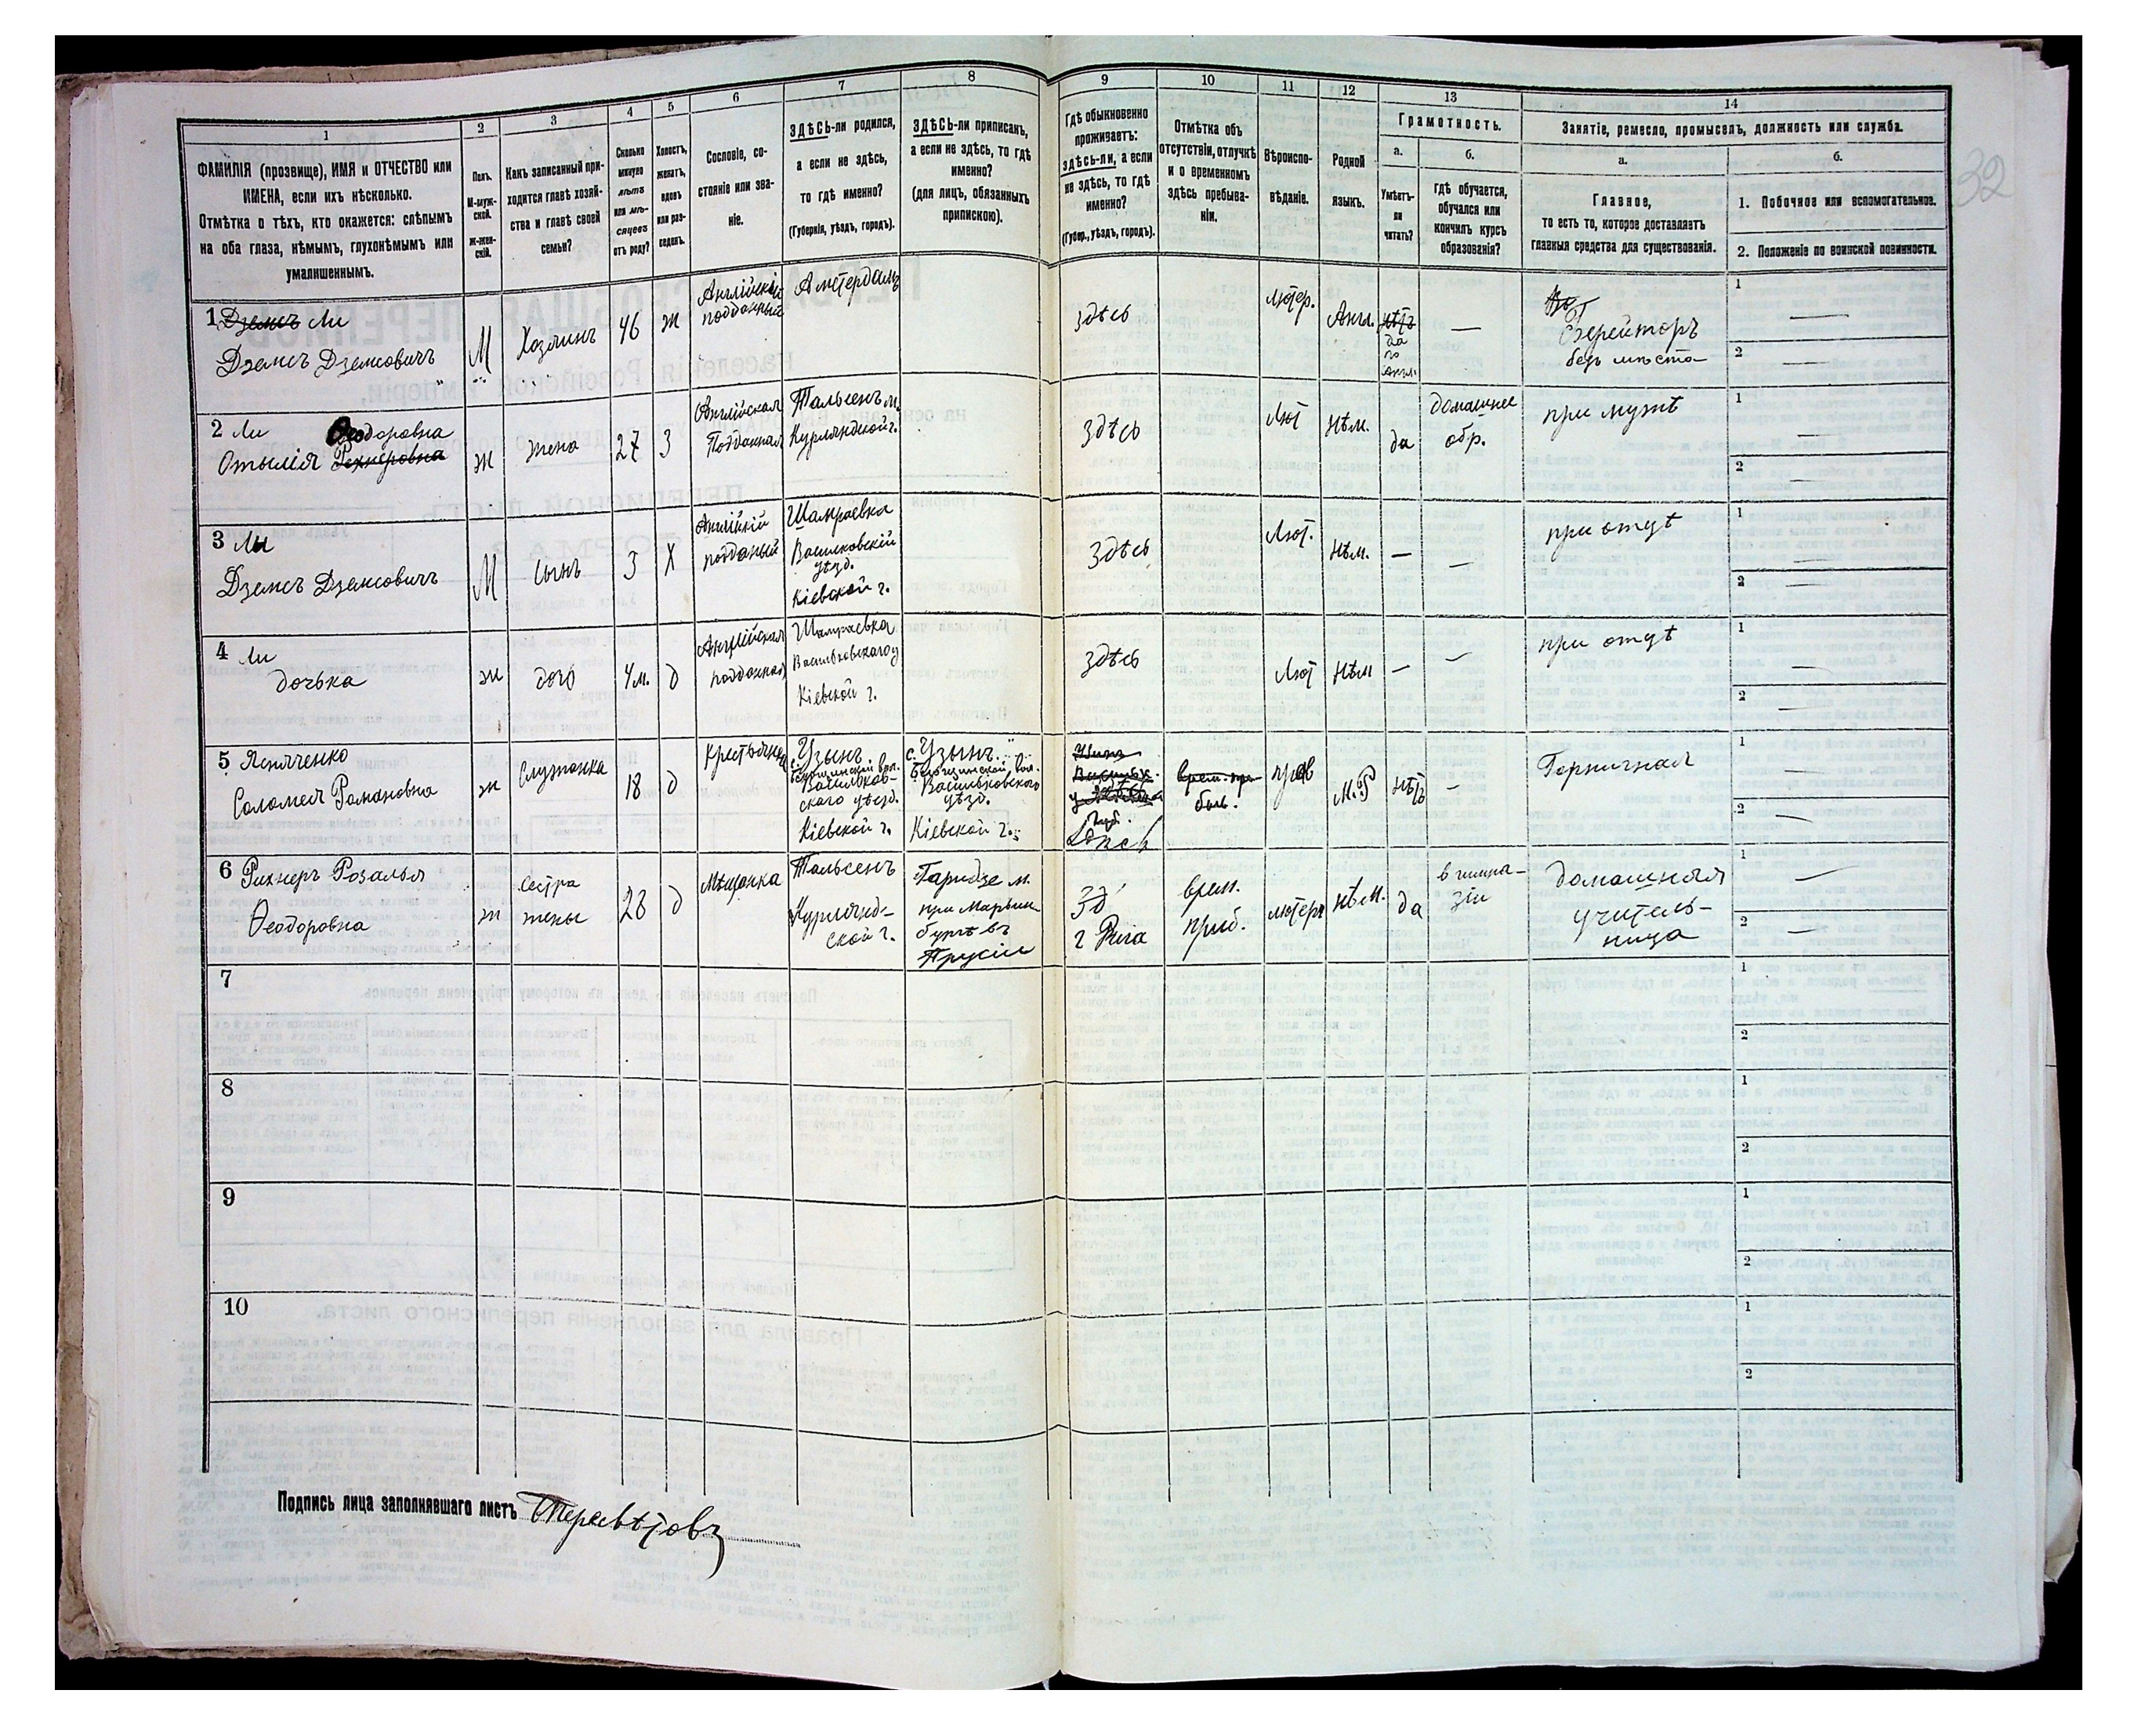 1
2
3
4
5
6
7
8
9
10
11
12
13
14
ФАМИЛІЯ (прозвище), ИМЯ и ОТЧЕСТВО или
ИМЕНА, если ихъ нѣсколько.
Отмѣтка о тѣхъ, кто окажется: слѣпымъ
на оба глаза, нѣмымъ, глухонѣмымъ или
умалишеннымъ.
Полъ.
М-муж-
ской.
Ж-жен-
скій.
Какъ записанный при-
ходится главѣ хозяй-
ства и главѣ своей
семьи?
Сколько
минуло
лѣтъ
или мѣ-
сяцевъ
отъ роду?
Холостъ,
женатъ,
вдовъ
или раз-
веденъ.
Сословіе, со-
стояніе или зва-
ніе.
ЗДѢСЬ-ли родился,
а если не здѣсь,
то гдѣ именно?
(Губернія, уѣздъ, городъ).
ЗДѢСЬ-ли приписанъ,
а если не здѣсь, то гдѣ
именно?
(для лицъ, обязанныхъ
припискою).
Гдѣ обыкновенно
проживаетъ:
здѣсь-ли, а если
не здѣсь, то гдѣ
именно?
(Губер., уѣздъ, городъ).
Отмѣтка объ
отсутствіи, отлучкѣ
и о временномъ
здѣсь пребыва-
ніи.
Вѣроиспо-
вѣданіе.
Родной
языкъ.
Грамотность.
а.
Умѣетъ-
ли
читать?
б.
гдѣ обучается,
обучался или
кончилъ курсъ
образованія?
Занятіе, ремесло, промыселъ, должность или служба.
а.
Главное,
то есть то, которое доставляетъ
главныя средства для существованія.
б.
1. Побочное или вспомогательное.
2. Положеніе по воинской повинности.
32
1 Дземсъ Ли
Дземсъ Дземсовичъ
М
Хозяинъ
46
ж
Англійскій
подданный
Амстердамъ
здѣсь
лютер.
Англ.
нѣтъ
да
по
англ.
—
Берейторъ
безъ мѣста
1
—
2
—
2 Ли Ѳеодоровна
Отылія Рехнеровна
ж
жена
27
З
Англійская
Подданная
Тальсенъ м.
Курляндской г.
здѣсь
Лют
нѣм.
да
домашнее
обр.
при мужѣ
1
—
2
—
3 Ли
Дземсъ Дземсовичъ
М
сынъ
3
Х
Англійкій
подданый
Шамраевка
Василковскій
уѣзд.
Кіевской г.
Здѣсь
Лют.
нѣм.
—
—
при отцѣ
1
—
2
—
4 Ли
дочька
ж
дочь
4 м.
д
Англійская
подданная
Шамраевка
Васильковскаго у
Кіевской г.
здѣсь
Лют
нѣм
—
—
при отцѣ
1
—
2
—
5
Соломея Романовна
ж
Служанка
18
д
Крестьянка
с. Узынъ
Васильков-
скаго уѣзд.
Кіевской г.
с. Узынъ
Васильковскаго
уѣзд.
Кіевской г.
Здѣсь
прав
М.Р
нѣтъ
—
Горничная
1
—
2
—
6 Рихнеръ Розалья
Ѳеодоровна
ж
сестра
жены
28
д
Мѣщанка
Тальсенъ
Курлянд-
ской г.
при Марьин-
бургѣ въ
Прусіи
Зд
г Рига
врем.
приб.
лютеръ
нѣм.
да
в гимна-
зіи
домашняя
учитель-
ница
1
—
2
—
7
1
2
8
1
2
9
1
2
10
1
2
Подпись лица заполнявшаго листъ